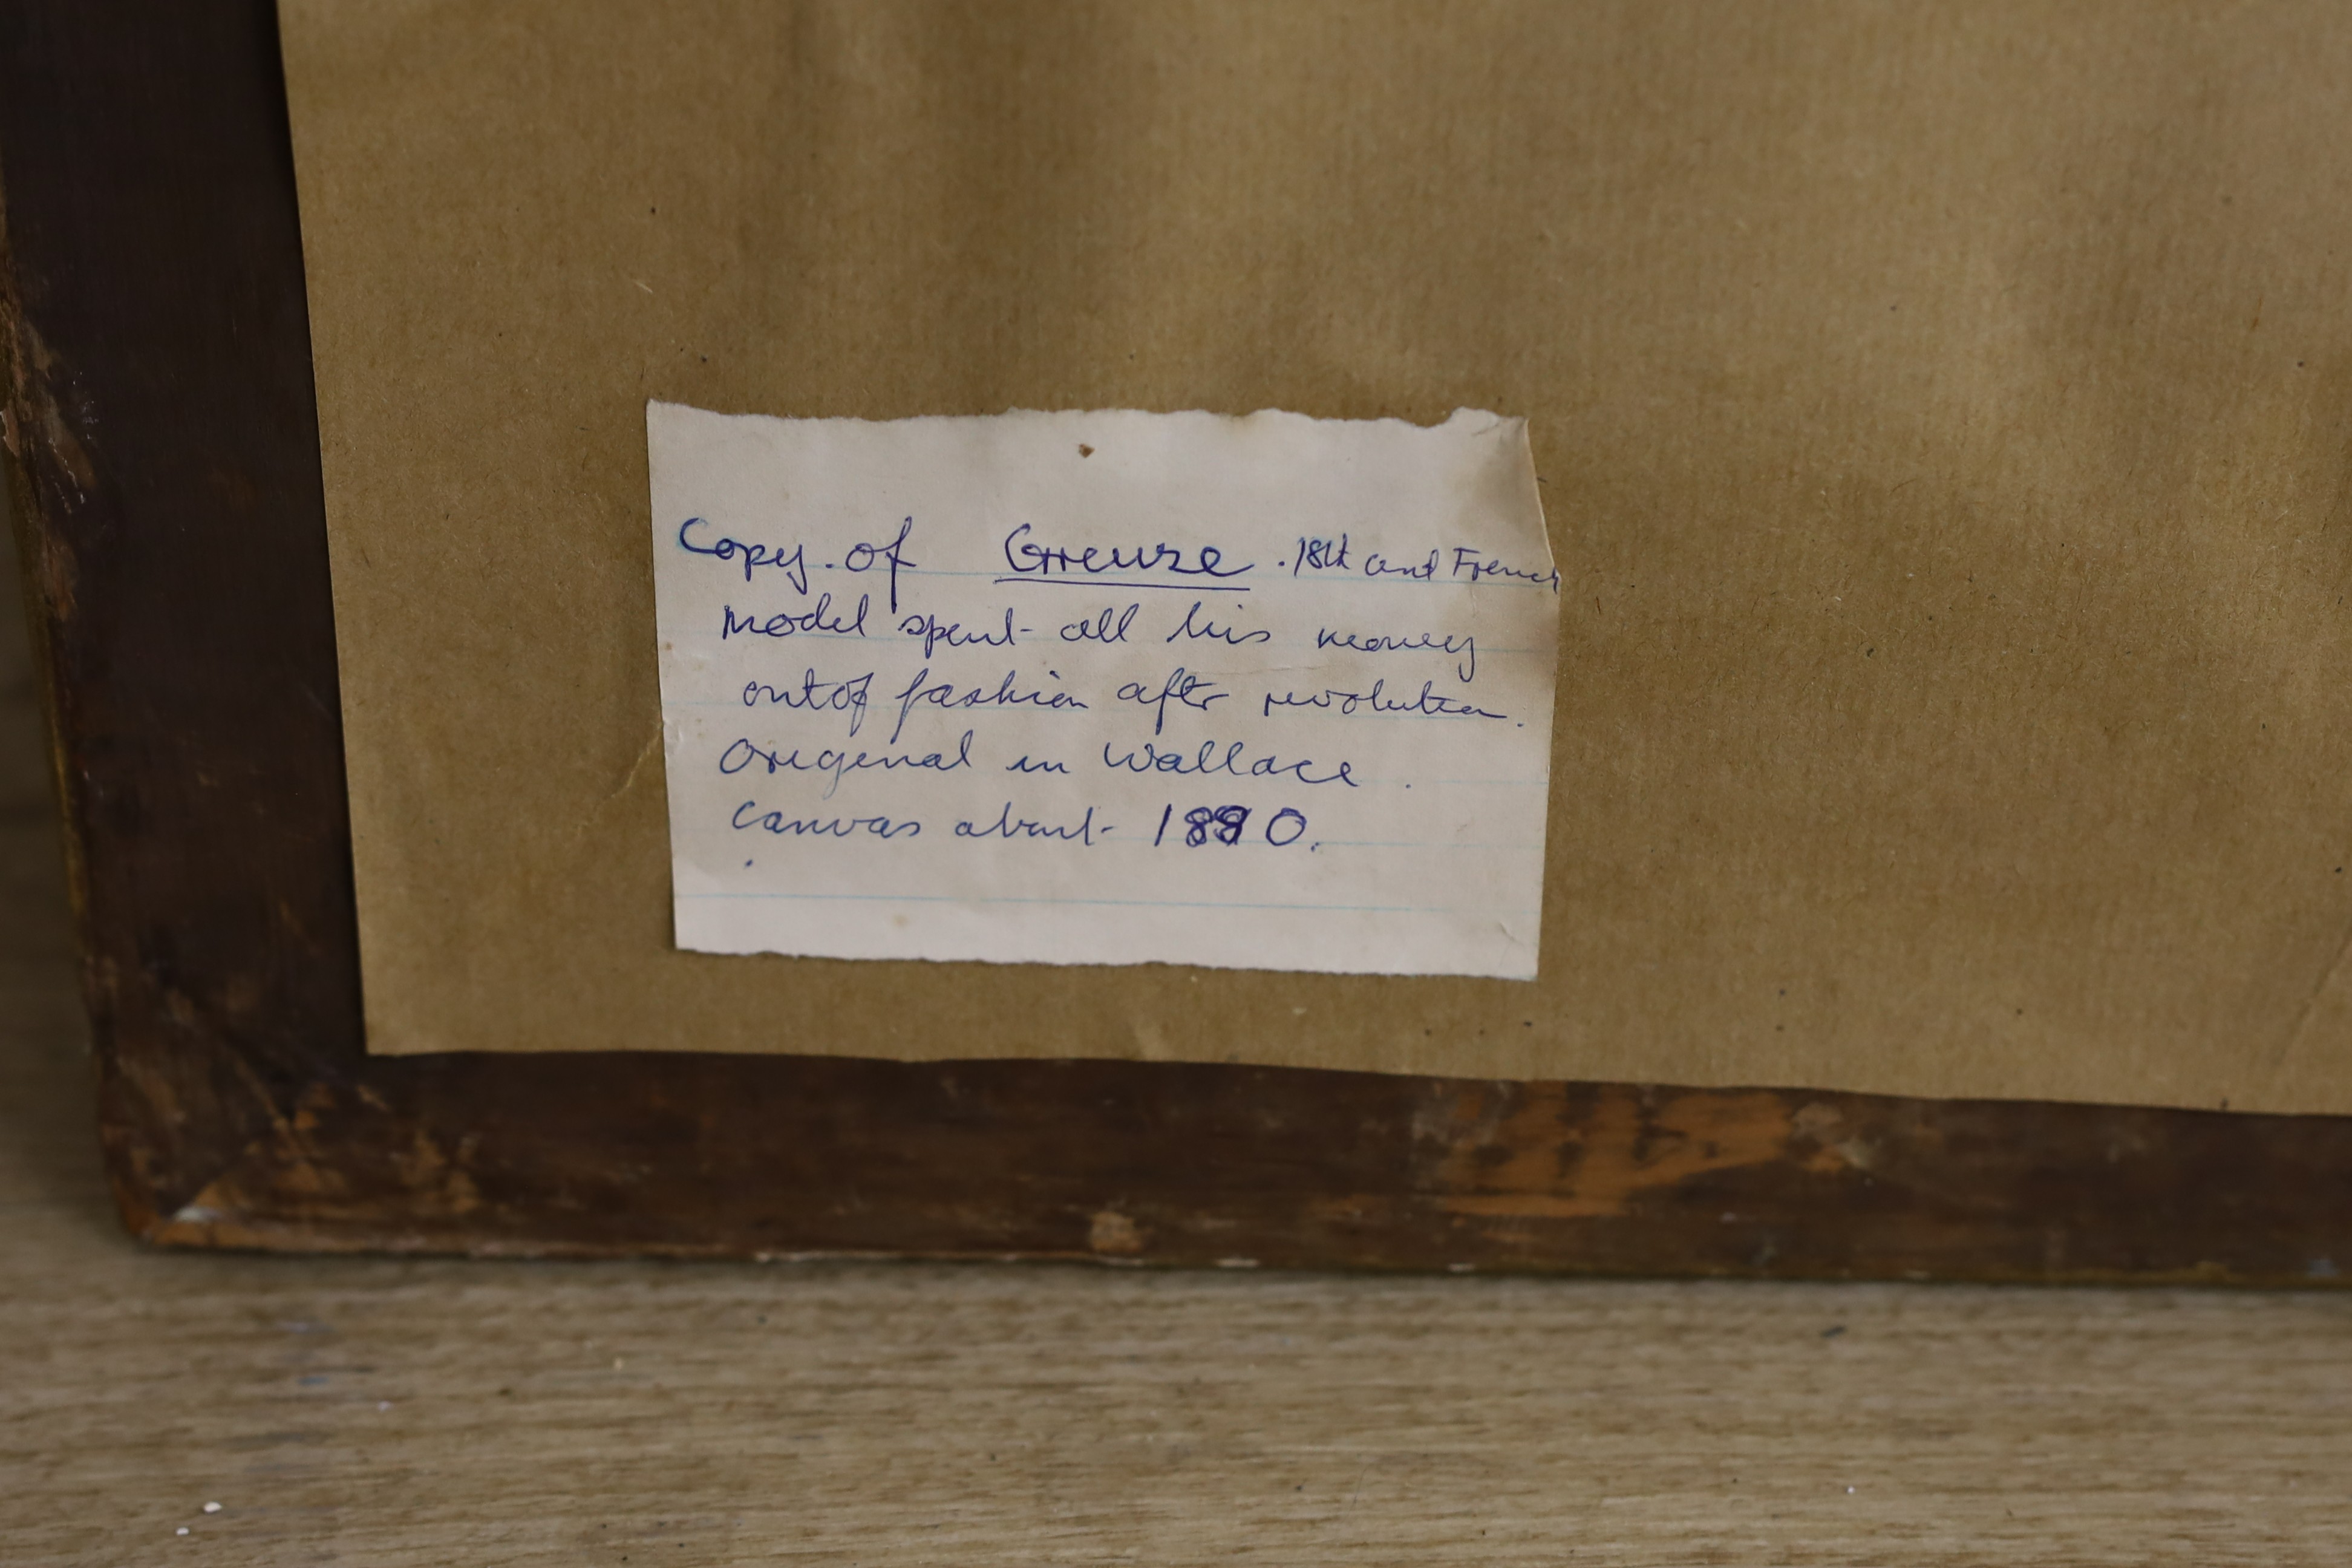 Copy. of Greuze . 18th cent French
Model spent all his money
out of fashion after revolution.
Original in Wallace .
Canvas about 1880.